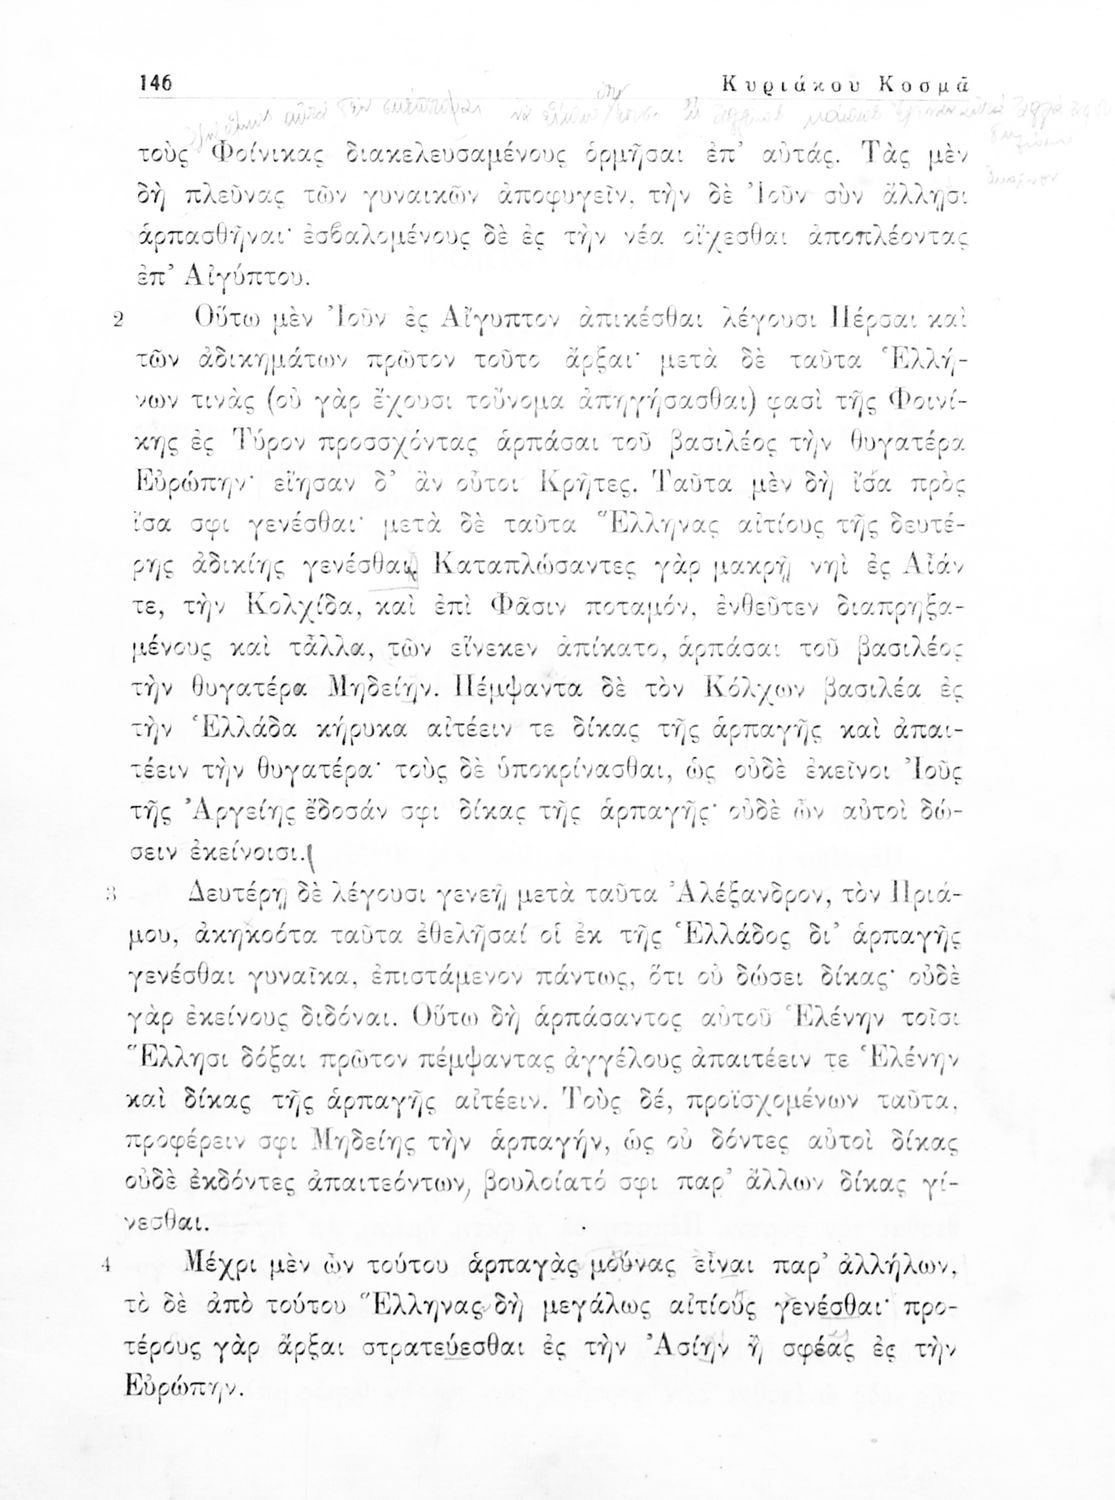 146 Κυριάκου Κοσμᾶ
τοὺς Φοίνικας διακελευσαμένους ὁρμῆσαι ἐπ’ αὐτάς. Τὰς μὲν
δὴ πλεῦνας τῶν γυναικῶν ἀποφυγεῖν, τὴν δὲ Ἰοῦν σὺν ἄλλῃσι
ἁρπασθῆναι· ἐσβαλομένους δὲ ἐς τὴν νέα οἴχεσθαι ἀποπλέοντας
ἐπ’ Αἰγύπτου.
2 Οὕτω μὲν Ἰοῦν ἐς Αἴγυπτον ἀπικέσθαι λέγουσι Πέρσαι καὶ
τῶν ἀδικημάτων πρῶτον τοῦτο ἄρξαι· μετὰ δὲ ταῦτα Ἑλλή-
νων τινὰς (οὐ γὰρ ἔχουσι τοὔνομα ἀπηγήσασθαι) φασὶ τῆς Φοινί-
κης ἐς Τύρον προσσχόντας ἁρπάσαι τοῦ βασιλέος τὴν θυγατέρα
Εὐρώπην· εἴησαν δ’ ἂν οὗτοι Κρῆτες. Ταῦτα μὲν δὴ ἴσα πρὸς
ἴσα σφι γενέσθαι· μετὰ δὲ ταῦτα Ἕλληνας αἰτίους τῆς δευτέ-
ρης ἀδικίης γενέσθαι. Καταπλώσαντες γὰρ μακρῇ νηὶ ἐς Αἶάν
τε, τὴν Κολχίδα, καὶ ἐπὶ Φᾶσιν ποταμόν, ἐνθεῦτεν διαπρηξα-
μένους καὶ τἆλλα, τῶν εἵνεκεν ἀπίκατο, ἁρπάσαι τοῦ βασιλέος
τὴν θυγατέρα Μηδείην. Πέμψαντα δὲ τὸν Κόλχων βασιλέα ἐς
τὴν Ἑλλάδα κήρυκα αἰτέειν τε δίκας τῆς ἁρπαγῆς καὶ ἀπαι-
τέειν τὴν θυγατέρα· τοὺς δὲ ὑποκρίνασθαι, ὡς οὐδὲ ἐκεῖνοι Ἰοῦς
τῆς Ἀργείης ἔδοσάν σφι δίκας τῆς ἁρπαγῆς· οὐδὲ ὦν αὐτοὶ δώ-
σειν ἐκείνοισι.
3 Δευτέρῃ δὲ λέγουσι γενεῇ μετὰ ταῦτα Ἀλέξανδρον, τὸν Πριά-
μου, ἀκηκοότα ταῦτα ἐθελῆσαί οἱ ἐκ τῆς Ἑλλάδος δι’ ἁρπαγῆς
γενέσθαι γυναῖκα, ἐπιστάμενον πάντως, ὅτι οὐ δώσει δίκας· οὐδὲ
γὰρ ἐκείνους διδόναι. Οὕτω δὴ ἁρπάσαντος αὐτοῦ Ἑλένην τοῖσι
Ἕλλησι δόξαι πρῶτον πέμψαντας ἀγγέλους ἀπαιτέειν τε Ἑλένην
καὶ δίκας τῆς ἁρπαγῆς αἰτέειν. Τοὺς δέ, προϊσχομένων ταῦτα,
προφέρειν σφι Μηδείης τὴν ἁρπαγήν, ὡς οὐ δόντες αὐτοὶ δίκας
οὐδὲ ἐκδόντες ἀπαιτεόντων, βουλοίατό σφι παρ’ ἄλλων δίκας γί-
νεσθαι.
4 Μέχρι μὲν ὦν τούτου ἁρπαγὰς μούνας εἶναι παρ’ ἀλλήλων,
τὸ δὲ ἀπὸ τούτου Ἕλληνας δὴ μεγάλως αἰτίους γενέσθαι· προ-
τέρους γὰρ ἄρξαι στρατεύεσθαι ἐς τὴν Ἀσίην ἢ σφέας ἐς τὴν
Εὐρώπην.